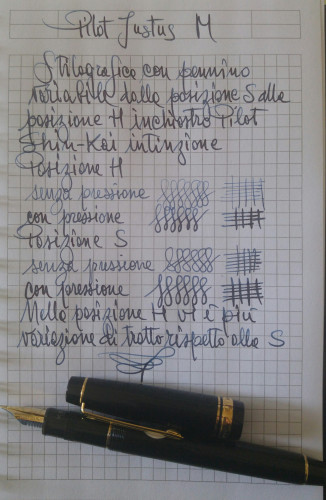 Pilot Justus M
Stilografica con pennino
variabile dalla posizione S alla
posizione H inchiostro Pilot
Shin-Kai in tinzione
Posizione H
senza pressione
con pressione
Posizione S
senza pressione
con pressione
Nella posizione H vi è più
variazione di tratto rispetto alla S